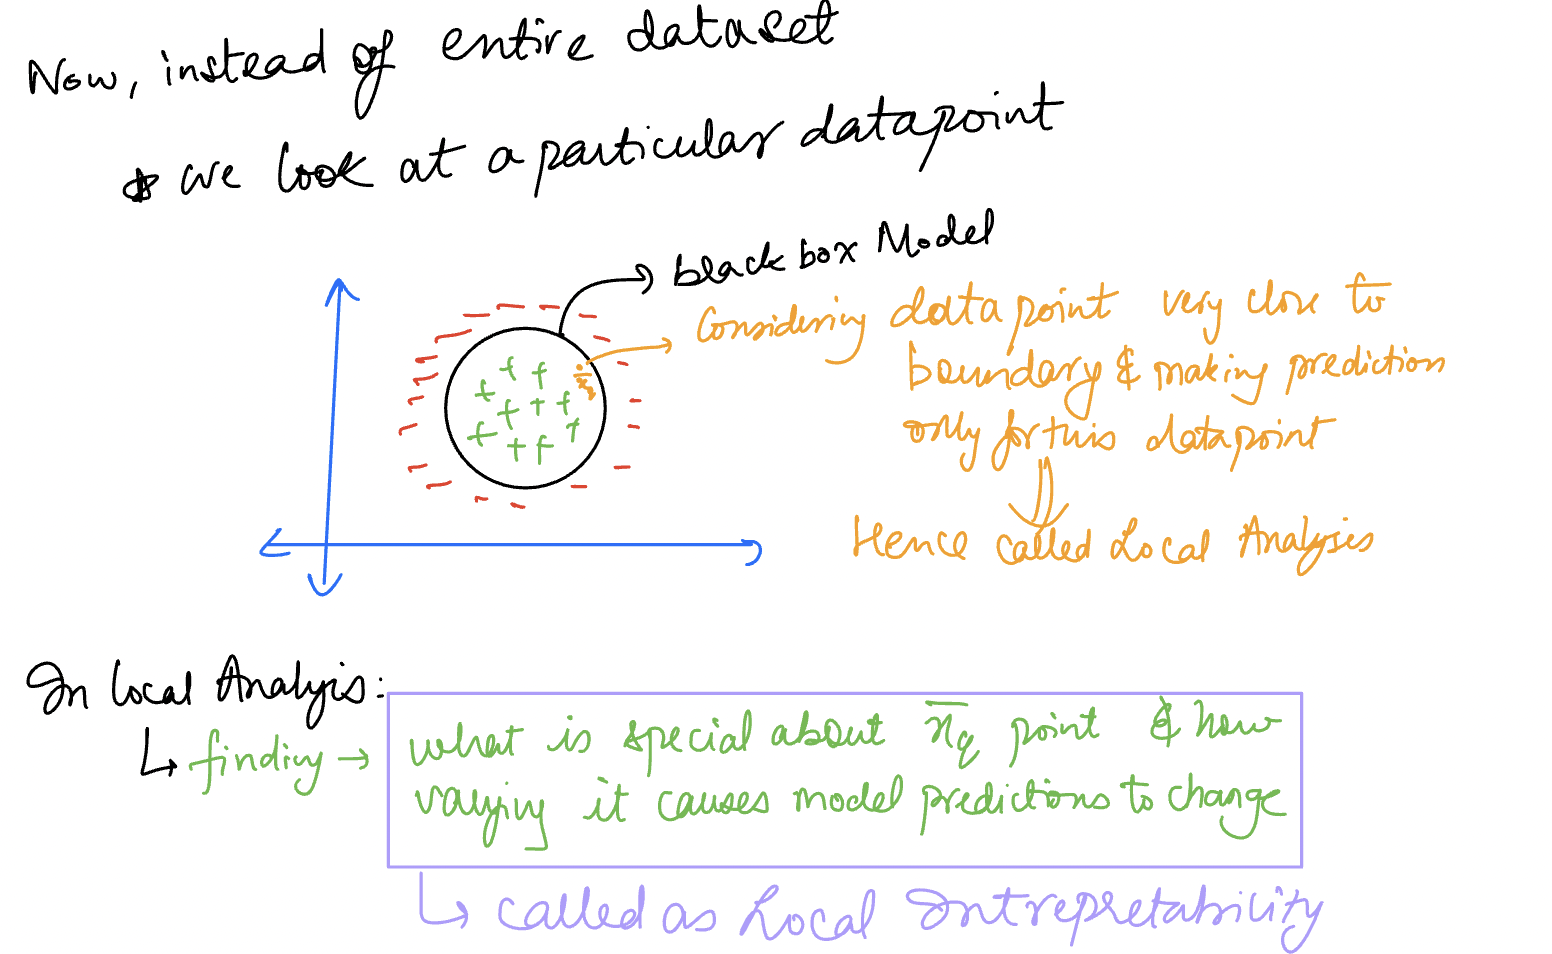 Now, instead of entire dataset
we look at a particular datapoint
black box Model
Considering datapoint very close to
boundary & making prediction
only for this datapoint
Hence called Local Analysis
In Local Analyis:
↳ finding →
what is special about x̄q point & how
varying it causes model predictions to change
↳ called as Local Intrepretability